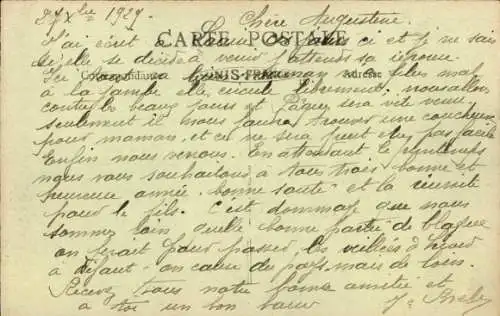 27 Xbre 1929. Chère Augustine
CARTE POSTALE
J'ai écrit à Louise ces jours ci et je ne sais
si elle se décide à venir j'attends sa réponse
Correspondance TUNIS-FRANCE Adresse
Ici maman a plus mal
à la jambe elle circule librement. nous allons
contre les beaux jours et Pâques sera vite venu
seulement il nous faudra trouver une coucheuse
pour maman, et ce ne sera peut-être pas facile
Enfin nous verrons. En attendant le printemps
nous vous souhaitons à tous trois bonne et
heureuse année, bonne santé et la réussite
pour le fils. C'est dommage que nous
sommes loin quelle bonne partie de blague
on ferait pour passer les veillées d'hiver
à défaut on cause du pays, mais de loin.
Recevez tous notre bonne amitié et
à toi un bon baiser